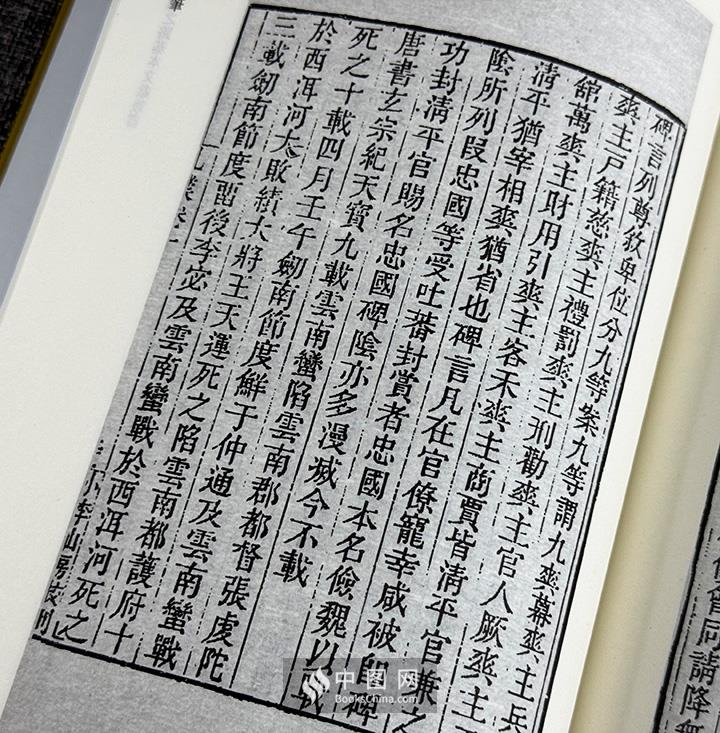 碑言列尊敘卑位分九等案九等謂九爽幕爽主兵
爽主戶籍慈爽主禮罰爽主刑勸爽主官人厥爽主
舘萬爽主財用引爽主客禾爽主商賈皆清平官兼之
清平猶宰相爽猶省也碑言凡在官僚寵幸咸被即碑
陰所列段忠國等受吐蕃封賞者忠國本名儉魏以戰
功封清平官賜名忠國碑陰亦多漫滅今不載
唐書玄宗紀天寶九載雲南蠻陷雲南郡都督張虔陀
死之十載四月壬午劒南節度鮮于仲通及雲南蠻戰
於西洱河大敗績大將王天運死之陷雲南都護府十
三載劒南節度畱後李宓及雲南蠻戰於西洱河死之
小李山房校刊
同請降
中图网
BooksChina.com